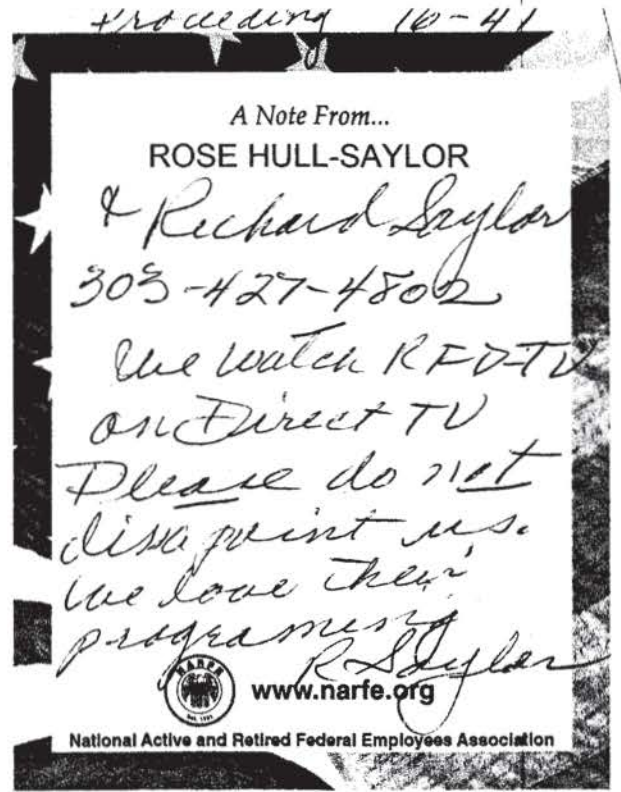 Proceeding 16-41
A Note From...
ROSE HULL-SAYLOR
& Richard Saylor
303-427-4802
We watch RFD-TV
on Direct TV
Please do not
disapoint us.
We love their
programing
R Saylor
NARFE
Est. 1921
www.narfe.org
National Active and Retired Federal Employees Association